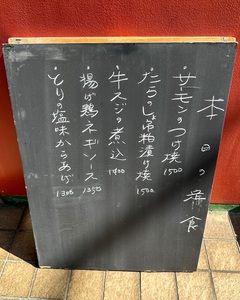 本日の洋食
・サーモンのつけ焼
1500
・たらのしょうゆ粕漬け焼
1500
・牛スジの煮込
1400
・揚げ鶏ネギソース
1350
・とりの塩味からあげ
1300